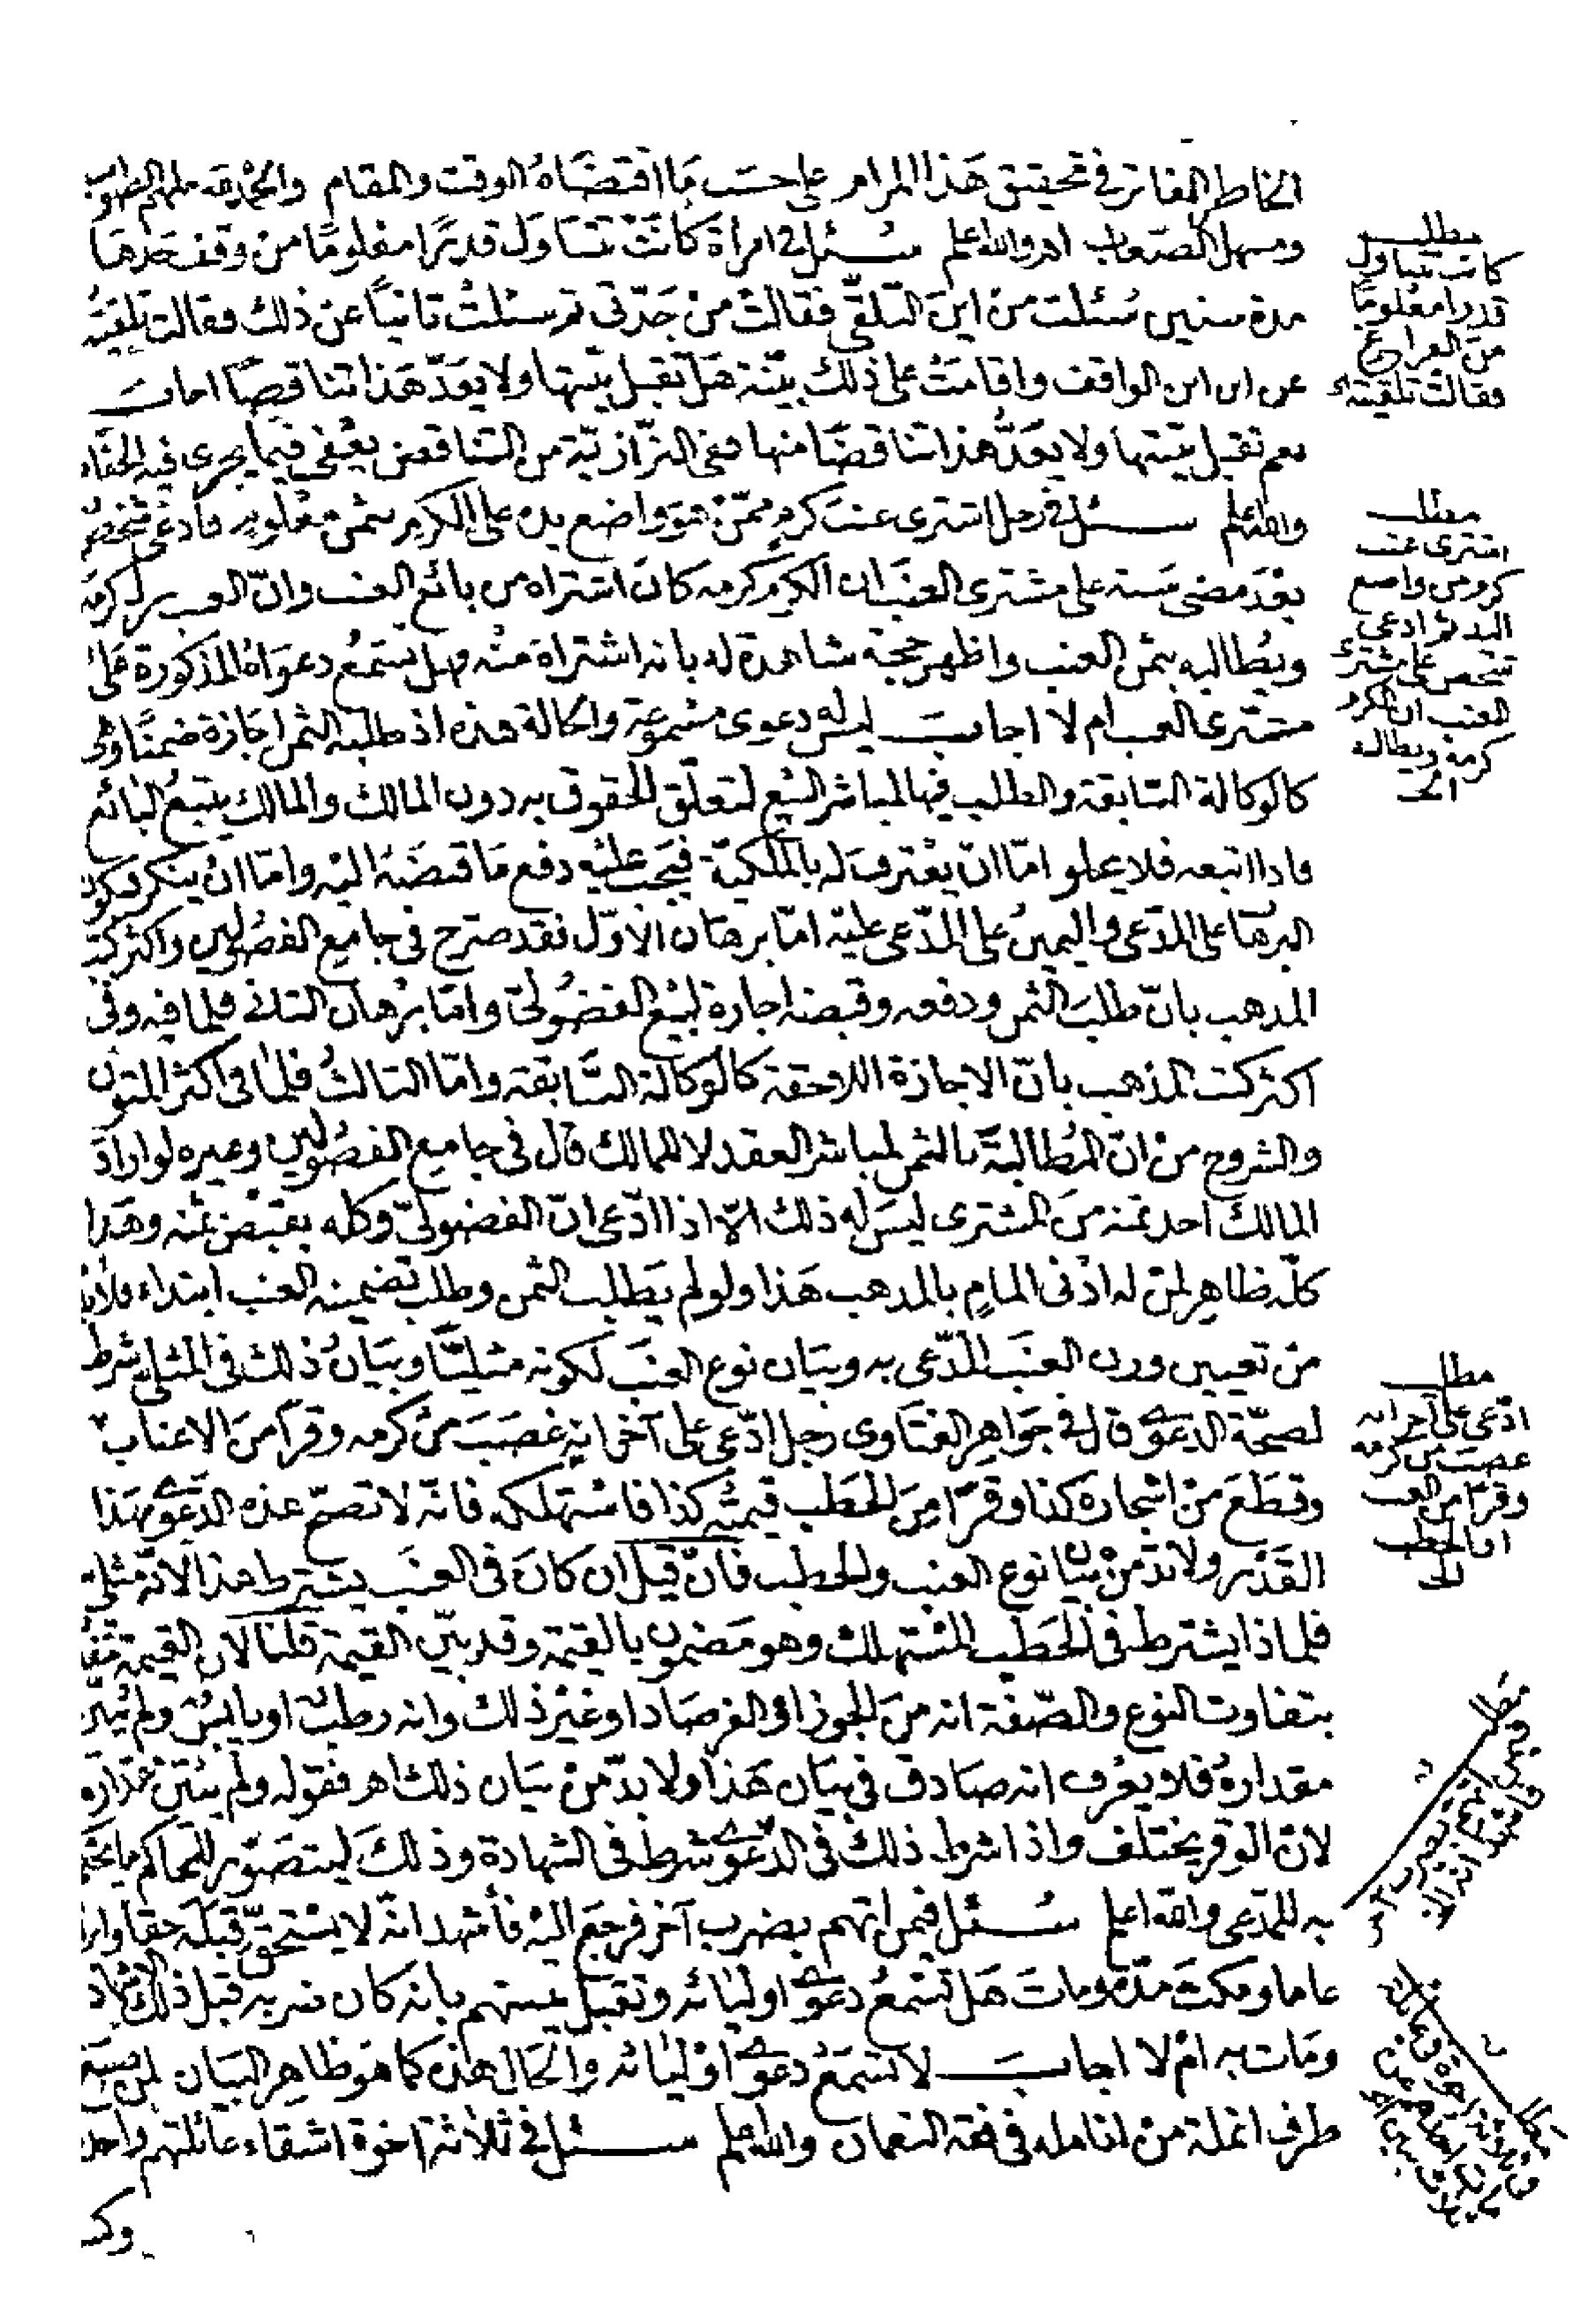 الخاطر الفاتر في تحقيق هذا المرام على حسب ما اقتضاه الوقت والمقام والحمد لله ملهم الصواب
ومسهل الصعاب اهـ والله اعلم سئل في امرأة كانت تتناول قدرا معلوما من وقف جدها
مدة سنين سئلت من اين التلقي فقالت من جدتي ثم سئلت ثانيا عن ذلك فقالت تلقيته
عن ابن ابن الواقف واقامت على ذلك بينة هل تقبل بينتها ولا يعد هذا تناقضا اجاب
نعم تقبل بينتها ولا يعد هذا تناقضا منها ففي البزازية من التناقض يعفى فيما يجري فيه الخفاء
والله اعلم سئل في رجل اشترى عنب كرم ممن هو واضع يده على الكرم بثمن معلوم فادعى شخص
بعد مضي سنة على مشتري العنب ان الكرم كرمه كان اشتراه من بائع العنب وان العنب كرمه
ويطالبه بثمن العنب واظهر حجة شاهدة له بانه اشتراه منه فهل تسمع دعواه المذكورة على
مشتري العنب ام لا اجاب ليس له دعوى مسموعة والحالة هذه اذ طلبه الثمن اجازة ضمنا وهي
كالوكالة السابقة والطلب فيها لمباشر البيع لتعلق الحقوق به دون المالك والمالك يتبع البائع
فاذا اتبعه فلا يخلو اما ان يعترف له بالملكية فيجب عليه دفع ما قبضه اليه واما ان ينكر فيكون
البرهان على المدعي واليمين على المدعى عليه اما برهان الاول فقد صرح في جامع الفصولين واكثر كتب
المذهب بان طلب الثمن ودفعه وقبضه اجازة لبيع الفضولي واما برهان الثاني فلما فيه وفي
اكثر كتب المذهب بان الاجازة اللاحقة كالوكالة السابقة واما الثالث فلما في اكثر المتون
والشروح من ان المطالبة بالثمن لمباشر العقد لا للمالك قال في جامع الفصولين وغيره لو اراد
المالك اخذ ثمنه من المشتري ليس له ذلك الا اذا ادعى ان الفضولي وكله بقبض ثمنه وهذا
كله ظاهر لمن له ادنى المام بالمذهب هذا ولو لم يطلب الثمن وطلب تضمينه العنب ابتداء فلا بد
من تعيين وزن العنب المدعى به وبيان نوع العنب لكونه مثليا وبيان ذلك في المثلي شرط
لصحة الدعوى قال في جواهر الفتاوى رجل ادعى على آخر انه غصب من كرمه وقرا من الاعناب
وقطع من اشجاره كذا وقرا من الحطب قيمته كذا فاستهلكه فانه لا تصح هذه الدعوى بهذا
القدر ولا بد من بيان نوع العنب والحطب فان قيل ان كان في العنب يشترط هذا لانه مثلي
فلماذا يشترط في الحطب المستهلك وهو مضمون بالقيمة وقد بين القيمة قلنا لان القيمة تتفاوت
بتفاوت النوع والصفة انه من الجوز او الفرصاد او غير ذلك وانه رطب او يابس ولم يبين
مقداره فلا يعرف انه صادق في بيان هذا ولا بد من بيان ذلك اهـ فقوله ولم يبين مقداره
لان الوقر يختلف واذا شرط ذلك في الدعوى شرط في الشهادة وذلك ليتصور للحاكم ما يحكم
به للمدعي والله اعلم سئل فيمن اتهم بضرب آخر فرجع اليه فأشهد انه لا يستحق قبله حقا وابراء
عاما ومكث مدة ومات هل تسمع دعوى اوليائه وتقبل بينتهم بانه كان ضربه قبل ذلك الاشهاد
ومات به ام لا اجاب لا تسمع دعوى اوليائه والحال هذه كما هو ظاهر البيان لمن مسه
طرف انملة من انامله في فقه النعمان والله اعلم سئل في ثلاثة اخوة اشقاء عائلتهم واحدة
وكـ
مطلب
كانت تتناول
قدرا معلوما
من
فقالت تلقيته
مطلب
اشترى عنب
كرم من واضع
اليد ثم ادعى
شخص على مشتري
العنب ان الكرم
كرمه ويطالبه
الخ
مطلب
ادعى على آخر انه
غصب من كرمه
وقرا من العنب
الحطب
الخ
مطلب